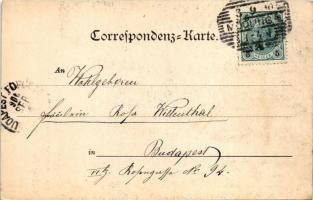 Correspondenz-Karte.
An
Wohlgeboren
Fräulein Rosa Wittenthal
in Budapest
VII. Rosengasse No. 94.